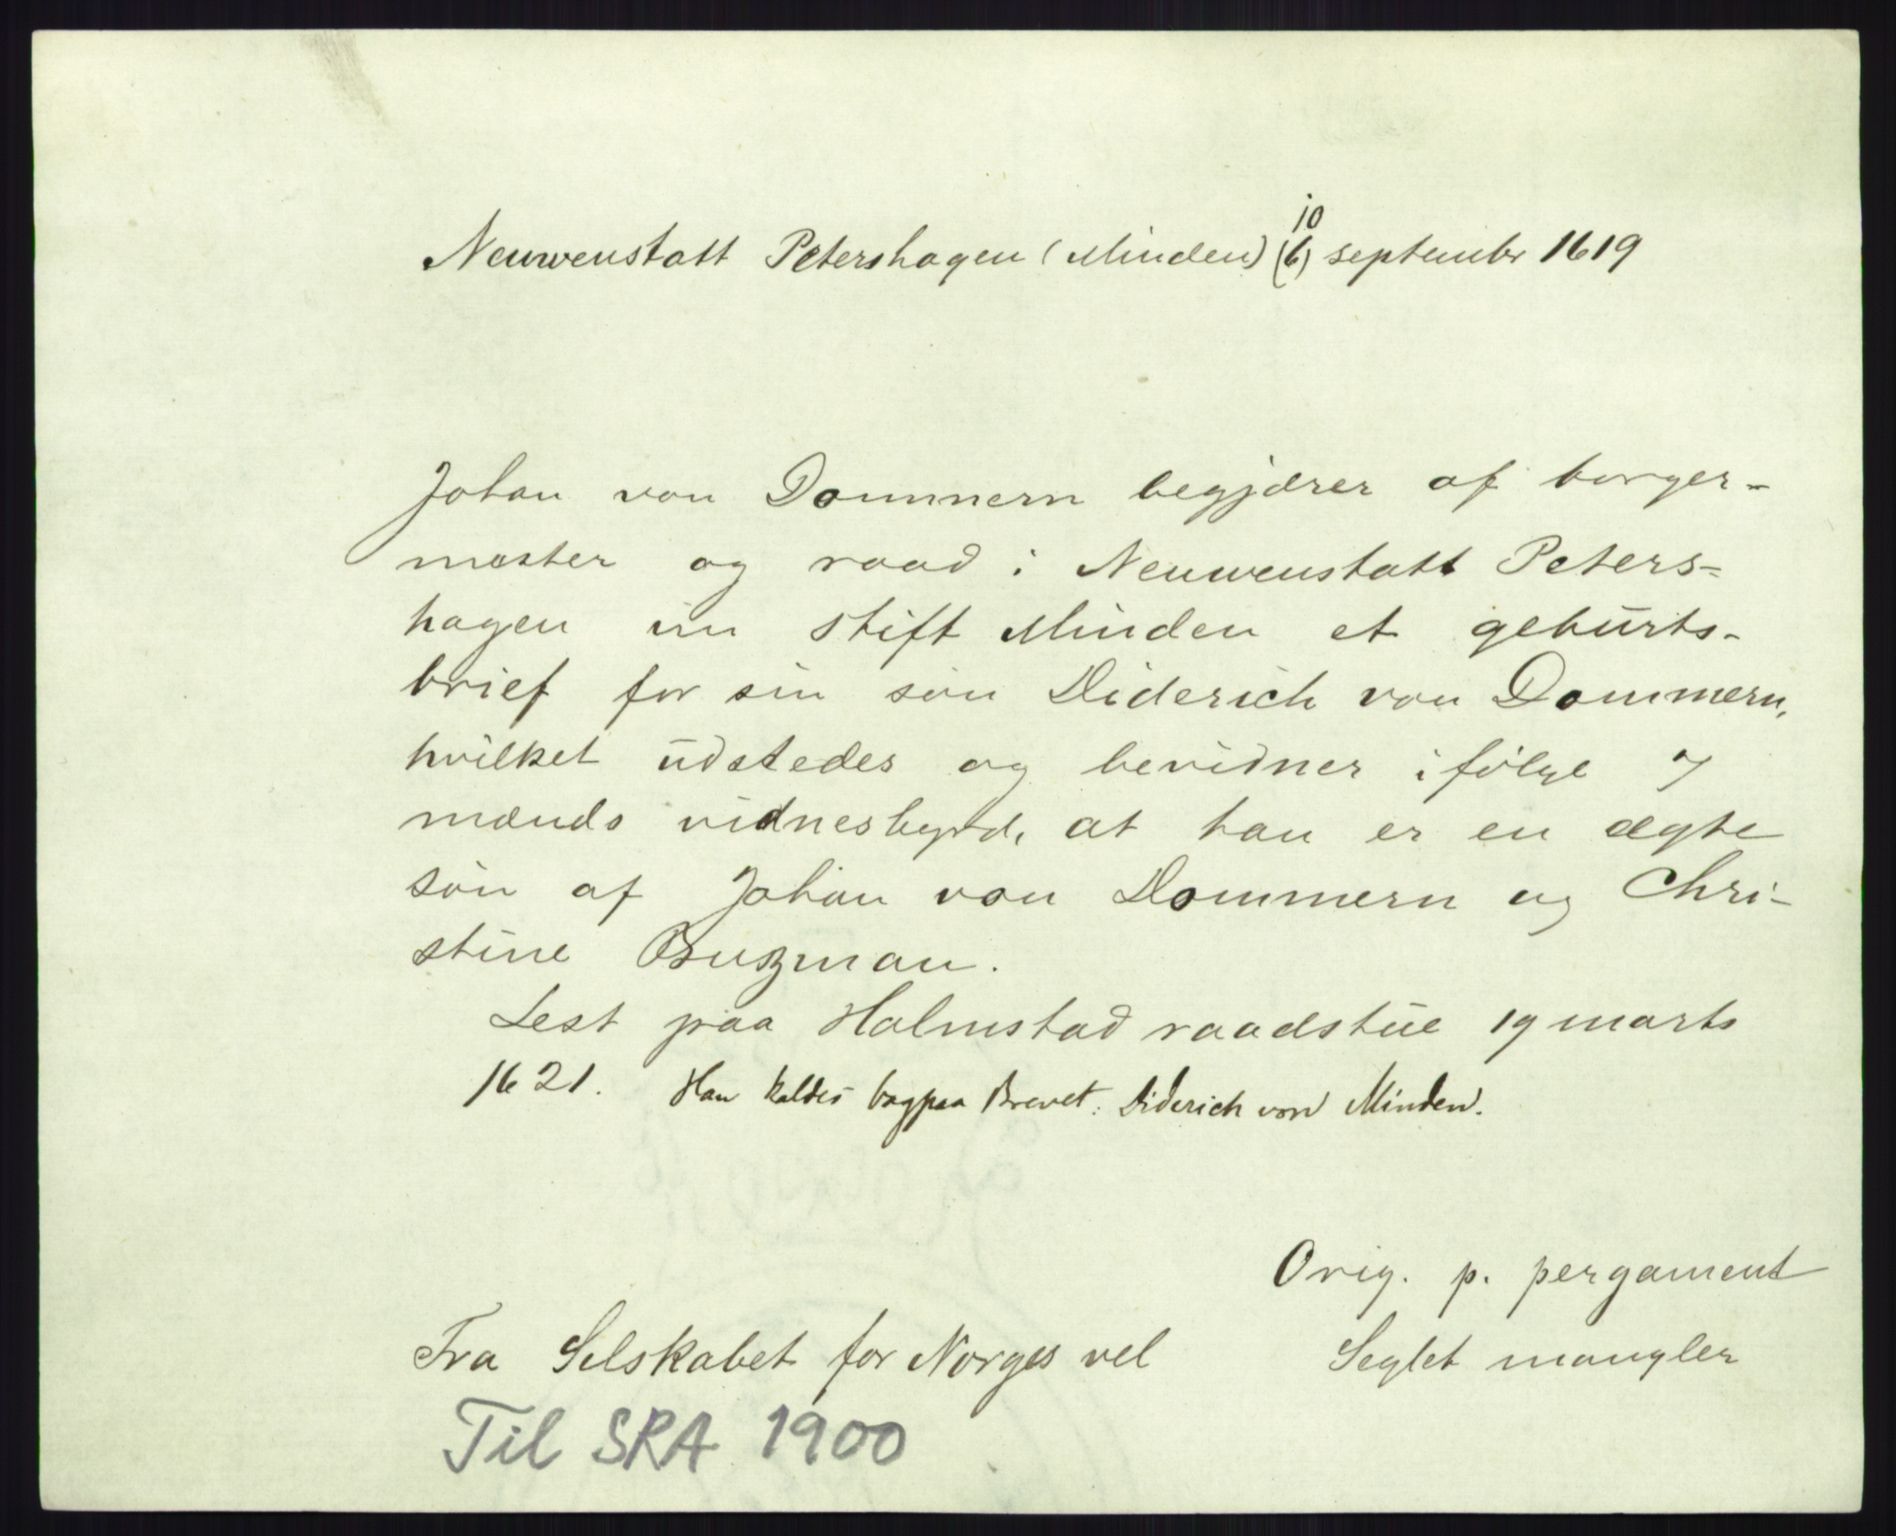 10
Neuwenstatt Petershagen (Minden) (6) september 1619
Johan von Dommern begjærer af borger-
mester og raad i Neuwenstatt Peters-
hagen im stift Minden et gebürts-
brief for sin søn Diderich von Dommern,
hvilket üdstedes og bevidner ifølge 7
mænds vidnesbyrd, at han er en ægte
søn af Johan von Dommern og Chri-
stine Buszman.
Lest paa Halmstad raadstüe 19 marts
1621. Han kaldes bagpaa Brevet: Diderich von Minden.
Orig. p. pergament
Fra Selskabet for Norges vel Seglet mangler
Til SRA 1900